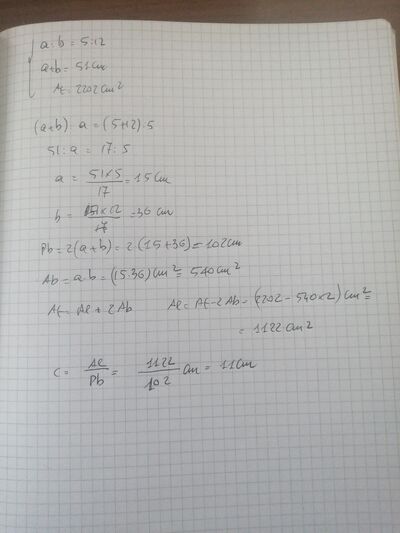 a:b = 5:12
a+b = 51 cm
At = 2202 cm²
(a+b) : a = (5+12) : 5
51 : a = 17 : 5
a = 51x5/17 = 15 cm
b = 51x12/17 = 36 cm
Pb = 2(a+b) = 2·(15+36) = 102 cm
Ab = a·b = (15·36) cm² = 540 cm²
At = Al + 2Ab Al = At - 2Ab = (2202 - 540x2) cm² =
= 1122 cm²
c = Al/Pb = 1122/102 cm = 11 cm